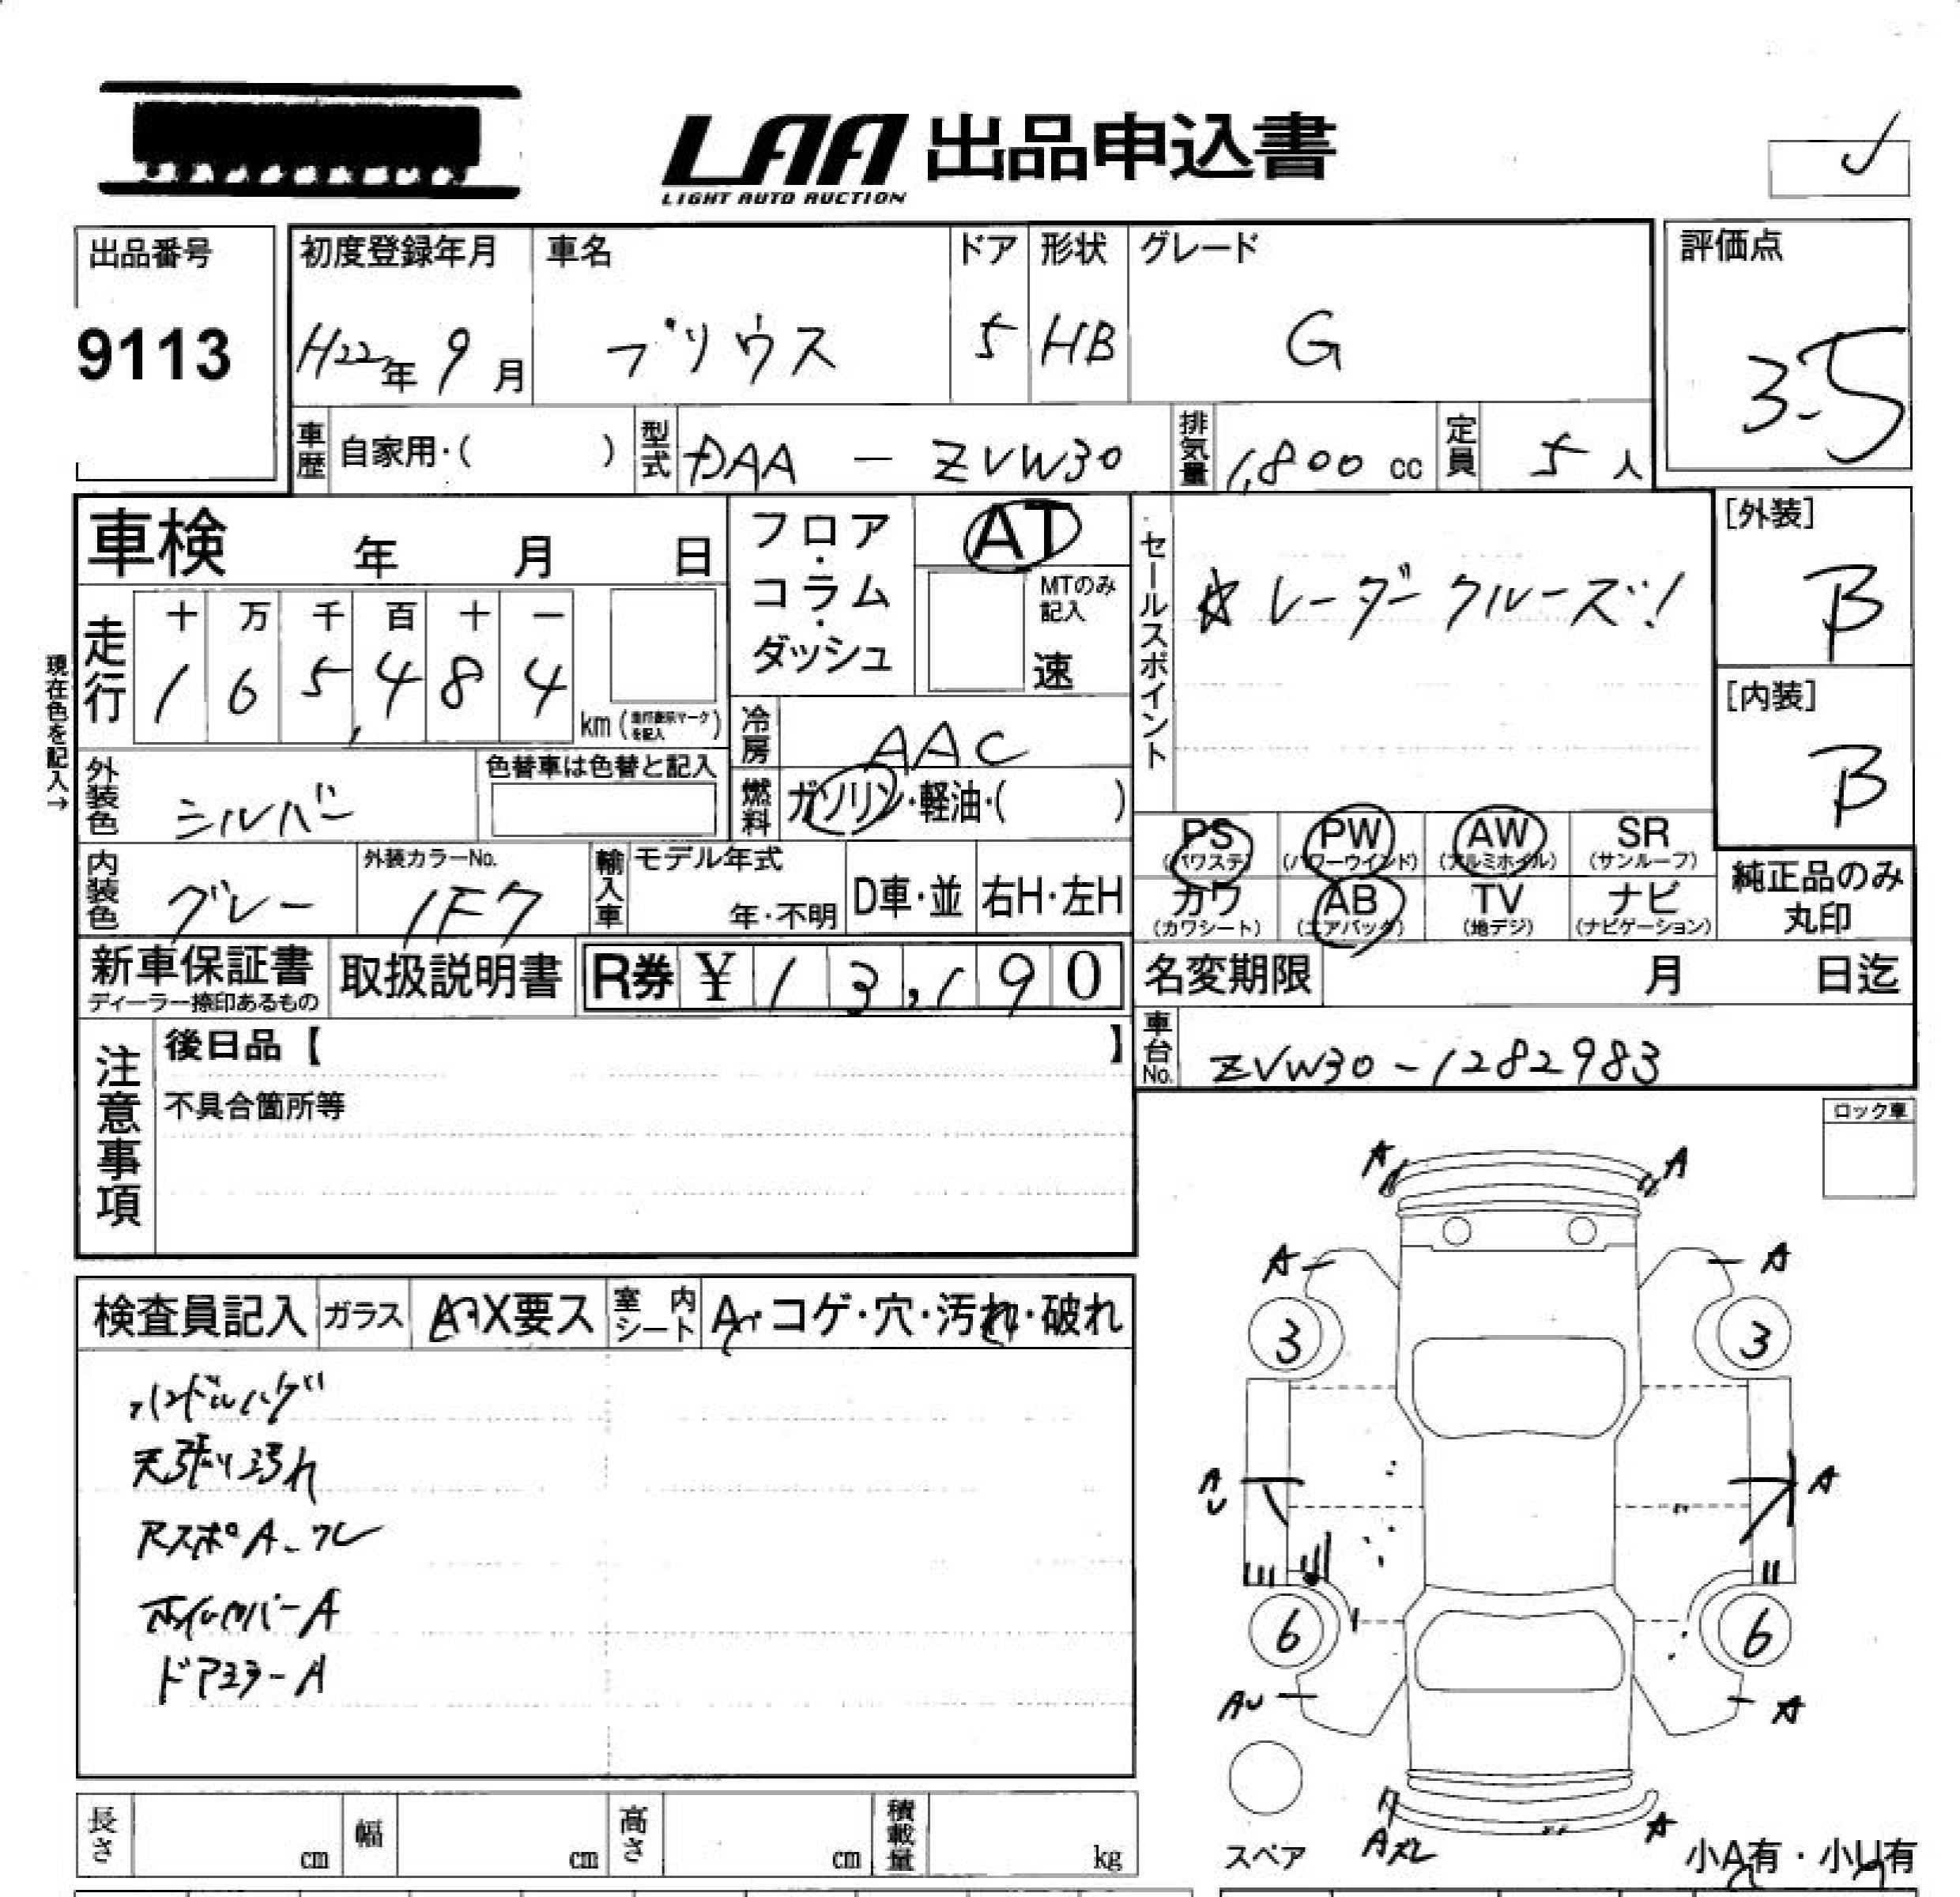 LAA 出品申込書
LIGHT AUTO AUCTION
出品番号
9113
初度登録年月
H22年 9月
車名
プリウス
ドア
5
形状
HB
グレード
G
評価点
3.5
車歴 自家用・( )
型式 DAA - ZVW30
排気量 1,800 cc
定員 5 人
車検 年 月 日
現在色を記入→
走行
十 万 千 百 十 一
1 6 5,4 8 4
km (走行表示マークを記入)
フロア・コラム・ダッシュ
AT
MTのみ記入
速
セールスポイント
☆レーダークルーズ!
[外装]
B
[内装]
B
冷房 AAC
燃料 ガソリン・軽油・( )
外装色 シルバー
色替車は色替と記入
内装色 グレー
外装カラーNo.
1F7
輸入車
モデル年式
年・不明
D車・並
右H・左H
PS (パワステ)
PW (パワーウインド)
AW (アルミホイル)
SR (サンルーフ)
カワ (カワシート)
AB (エアバック)
TV (地デジ)
ナビ (ナビゲーション)
純正品のみ丸印
新車保証書
ディーラー捺印あるもの
取扱説明書
R券 ¥ 1 3,1 9 0
名変期限 月 日迄
車台No. ZVW30-1282983
注意事項
後日品【 】
不具合箇所等
ロック車
検査員記入
ガラス A・X要ス
室内シート A・コゲ・穴・汚れ・破れ
ハンドルハゲ
天張り汚れ
RスポA.ワレ
ホイルカバーA
ドアミラーA
A A
A A
3 3
A
U
A
6 6
AU A
スペア
Aズレ A
小A有・小U有
長さ cm
幅 cm
高さ cm
積載量 kg